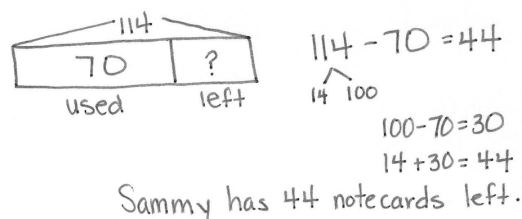 114
70 ?
used left
114 - 70 = 44
14 100
100 - 70 = 30
14 + 30 = 44
Sammy has 44 notecards left.